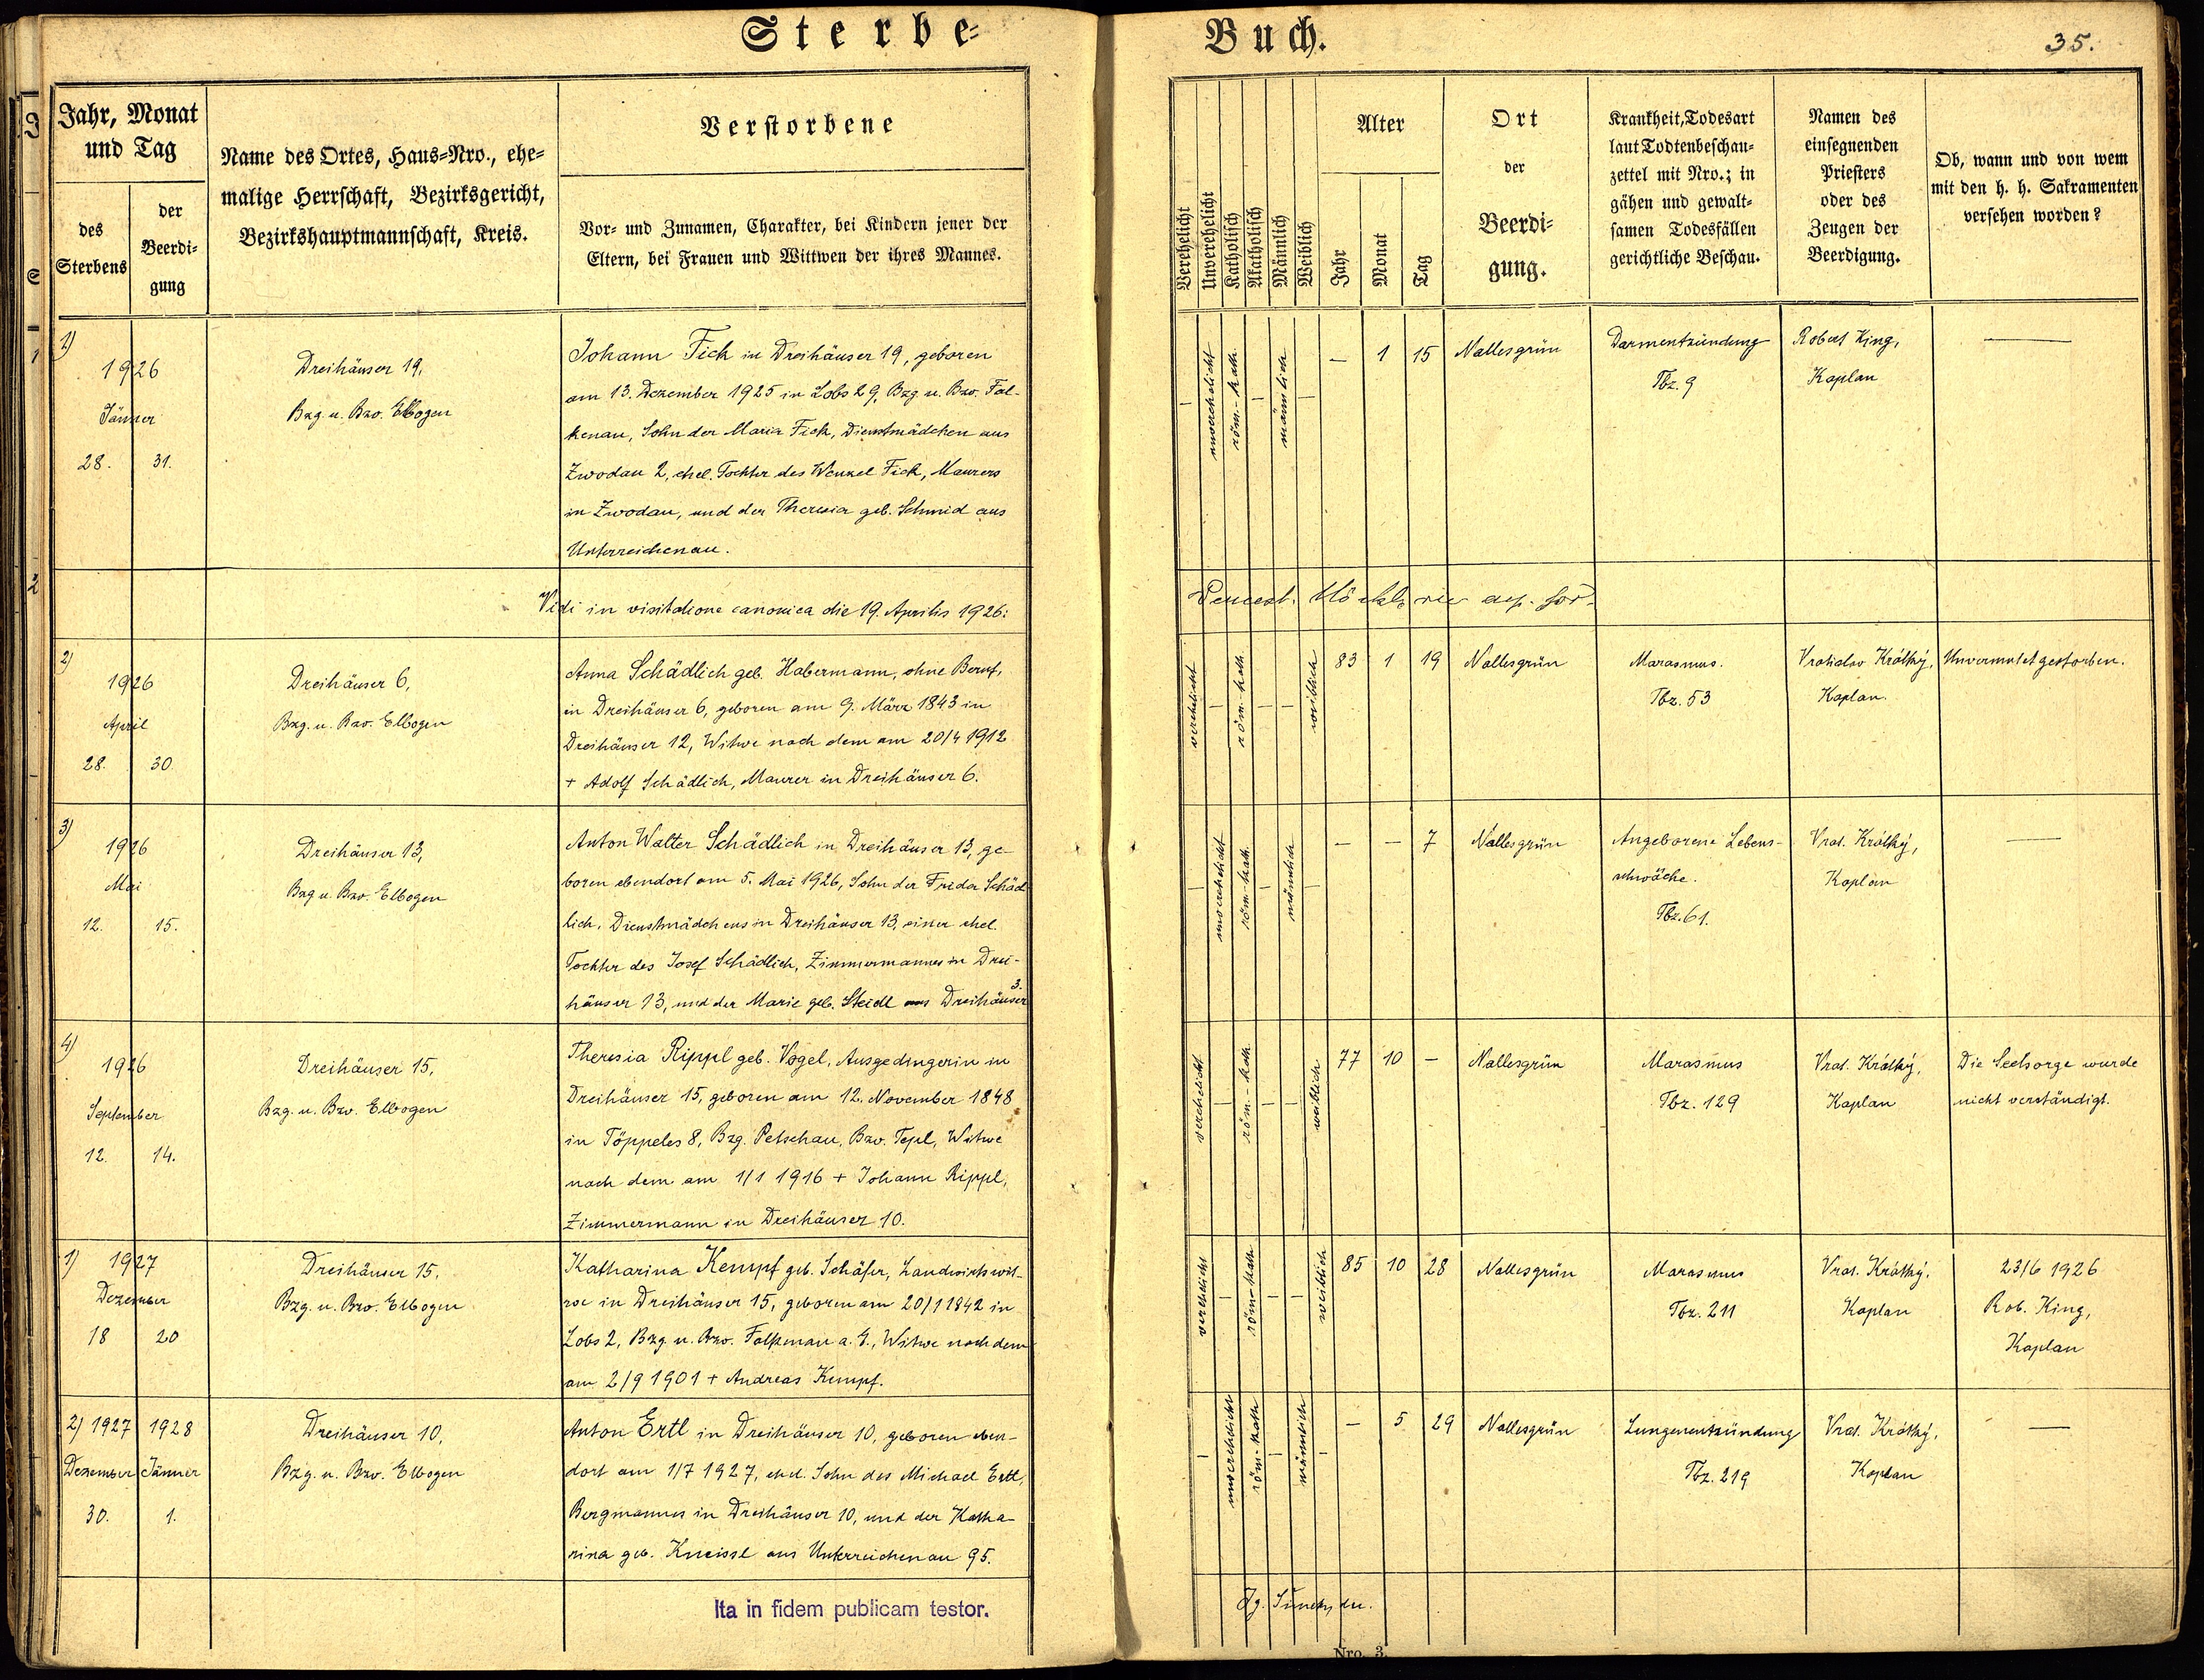 Sterbe=
Buch.
35.
Jahr, Monat
und Tag
des
Sterbens
der
Beerdi=
gung
Name des Ortes, Haus=Nro., ehe=
malige Herrschaft, Bezirksgericht,
Bezirkshauptmannschaft, Kreis.
Verstorbene
Vor= und Zunamen, Charakter, bei Kindern jener der
Eltern, bei Frauen und Wittwen der ihres Mannes.
Verehelicht
Unverehelicht
Katholisch
Akatholisch
Männlich
Weiblich
Alter
Jahr
Monat
Tag
Ort
der
Beerdi=
gung.
Krankheit, Todesart
laut Todtenbeschau=
zettel mit Nro.; in
gähen und gewalt=
samen Todesfällen
gerichtliche Beschau.
Namen des
einsegnenden
Priesters
oder des
Zeugen der
Beerdigung.
Ob, wann und von wem
mit den h. h. Sakramenten
versehen worden?
1)
1926
Jänner
28. 31.
Dreihäuser 19,
Bzg. u. Bzv. Elbogen
Johann Fick in Dreihäuser 19, geboren
am 13. Dezember 1925 in Lobs 29, Bzg. u. Bzv. Fal-
kenau, Sohn der Maria Fick, Dienstmädchen aus
Zwodau 2, ehel. Tochter des Wenzel Fick, Maurers
in Zwodau, und der Theresia geb. Schmid aus
Unterreichenau.
— unverehelicht röm.-kath. — männlich —
— 1 15 Nallesgrün
Darmentzündung
Tbz. 9
Robert King,
Kaplan
—
Vidi in visitatione canonica die 19. Aprilis 1926:
2)
1926
April
28. 30.
Dreihäuser 6,
Bzg. u. Bzv. Elbogen
Anna Schädlich geb. Habermann, ohne Beruf,
in Dreihäuser 6, geboren am 9. März 1843 in
Dreihäuser 12, Witwe nach dem am 20/4 1912
+ Adolf Schädlich, Maurer in Dreihäuser 6.
verehelicht — röm.-kath. — — weiblich
83 1 19 Nallesgrün
Marasmus.
Tbz. 53
Vratislav Krátký,
Kaplan.
Unvermutet gestorben.
3)
1926
Mai
12. 15.
Dreihäuser 13,
Bzg u. Bzv. Elbogen
Anton Walter Schädlich in Dreihäuser 13, ge-
boren ebendort am 5. Mai 1926, Sohn der Frida Schäd
lich, Dienstmädchens in Dreihäuser 13, einer ehel.
Tochter des Josef Schädlich, Zimmermannes in Drei-
häuser 13, und der Marie geb. Steidl aus Dreihäuser 3.
— unverehelicht röm.-kath. — männlich —
— — 7 Nallesgrün
Angeborene Lebens-
schwäche.
Tbz. 61.
Vrat. Krátký,
Kaplan
—
4)
1926
September
12. 14.
Dreihäuser 15,
Bzg. u. Bzv. Elbogen
Theresia Rippl geb. Vogel, Ausgedingerin in
Dreihäuser 15, geboren am 12. November 1848
in Töppeles 8, Bzg. Petschau, Bzv. Tepl, Witwe
nach dem am 1/1 1916 + Johann Rippl,
Zimmermann in Dreihäuser 10.
verehelicht — röm.-kath. — — weiblich
77 10 — Nallesgrün
Marasmus
Tbz. 129
Vrat. Krátký,
Kaplan
Die Seelsorge wurde
nicht verständigt.
1) 1927
Dezember
18 20
Dreihäuser 15,
Bzg. u. Bzv. Elbogen
Katharina Kempf geb. Schäfer, Landwirtswit-
we in Dreihäuser 15, geboren am 20/1 1842 in
Lobs 2, Bzg. u. Bzv. Falkenau a. E., Witwe nach dem
am 2/9 1901 + Andreas Kempf.
verehelicht — röm.-kath — — weiblich
85 10 28 Nallesgrün
Marasmus
Tbz. 211
Vrat. Krátký,
Kaplan
23/6 1926
Rob. King,
Kaplan
2) 1927 1928
Dezember Jänner
30. 1.
Dreihäuser 10,
Bzg. u. Bzv. Elbogen
Anton Ertl in Dreihäuser 10, geboren eben-
dort am 1/7 1927, ehel. Sohn des Michael Ertl,
Bergmannes in Dreihäuser 10, und der Katha-
rina geb. Kneissl aus Unterreichenau 95.
— unverehelicht röm.-kath — männlich —
— 5 29 Nallesgrün
Lungenentzündung
Tbz. 219
Vrat. Krátký,
Kaplan
—
Ita in fidem publicam testor.
Nro. 3.